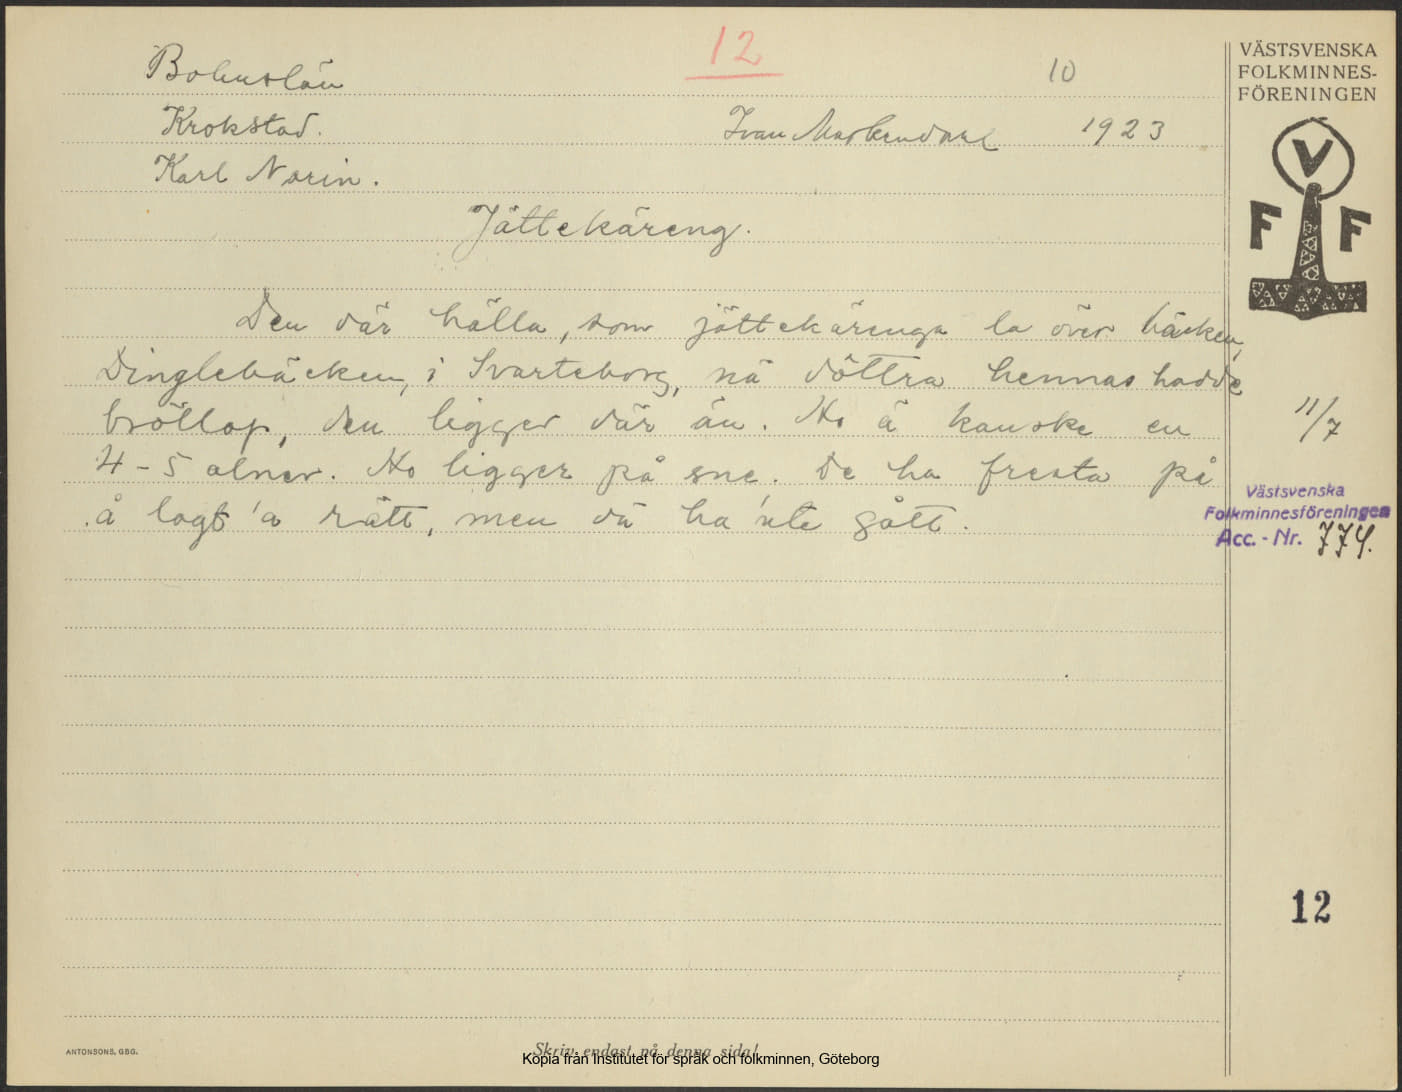 12
10
VÄSTSVENSKA
FOLKMINNES-
FÖRENINGEN
Bohuslän
Krokstad.
Ivan 1923
Karl Norin.
V
F F
Jättekäreng.
Den där hälla, som jättekärenga la över bäcken,
Dinglebäcken, i Svarteborg, nä döttra hennas hadde
bröllop, den ligger där än. Ho ä kanske en
4-5 alner. Ho ligger på sne. De ha fresta på
å lagt 'a rätt, men dä ha 'nte gått.
11/7
Västsvenska
Folkminnesföreningen
Acc. - Nr. 774.
12
ANTONSONS, GBG.
Skriv endast på denna sida!
Kopia från Institutet för språk och folkminnen, Göteborg